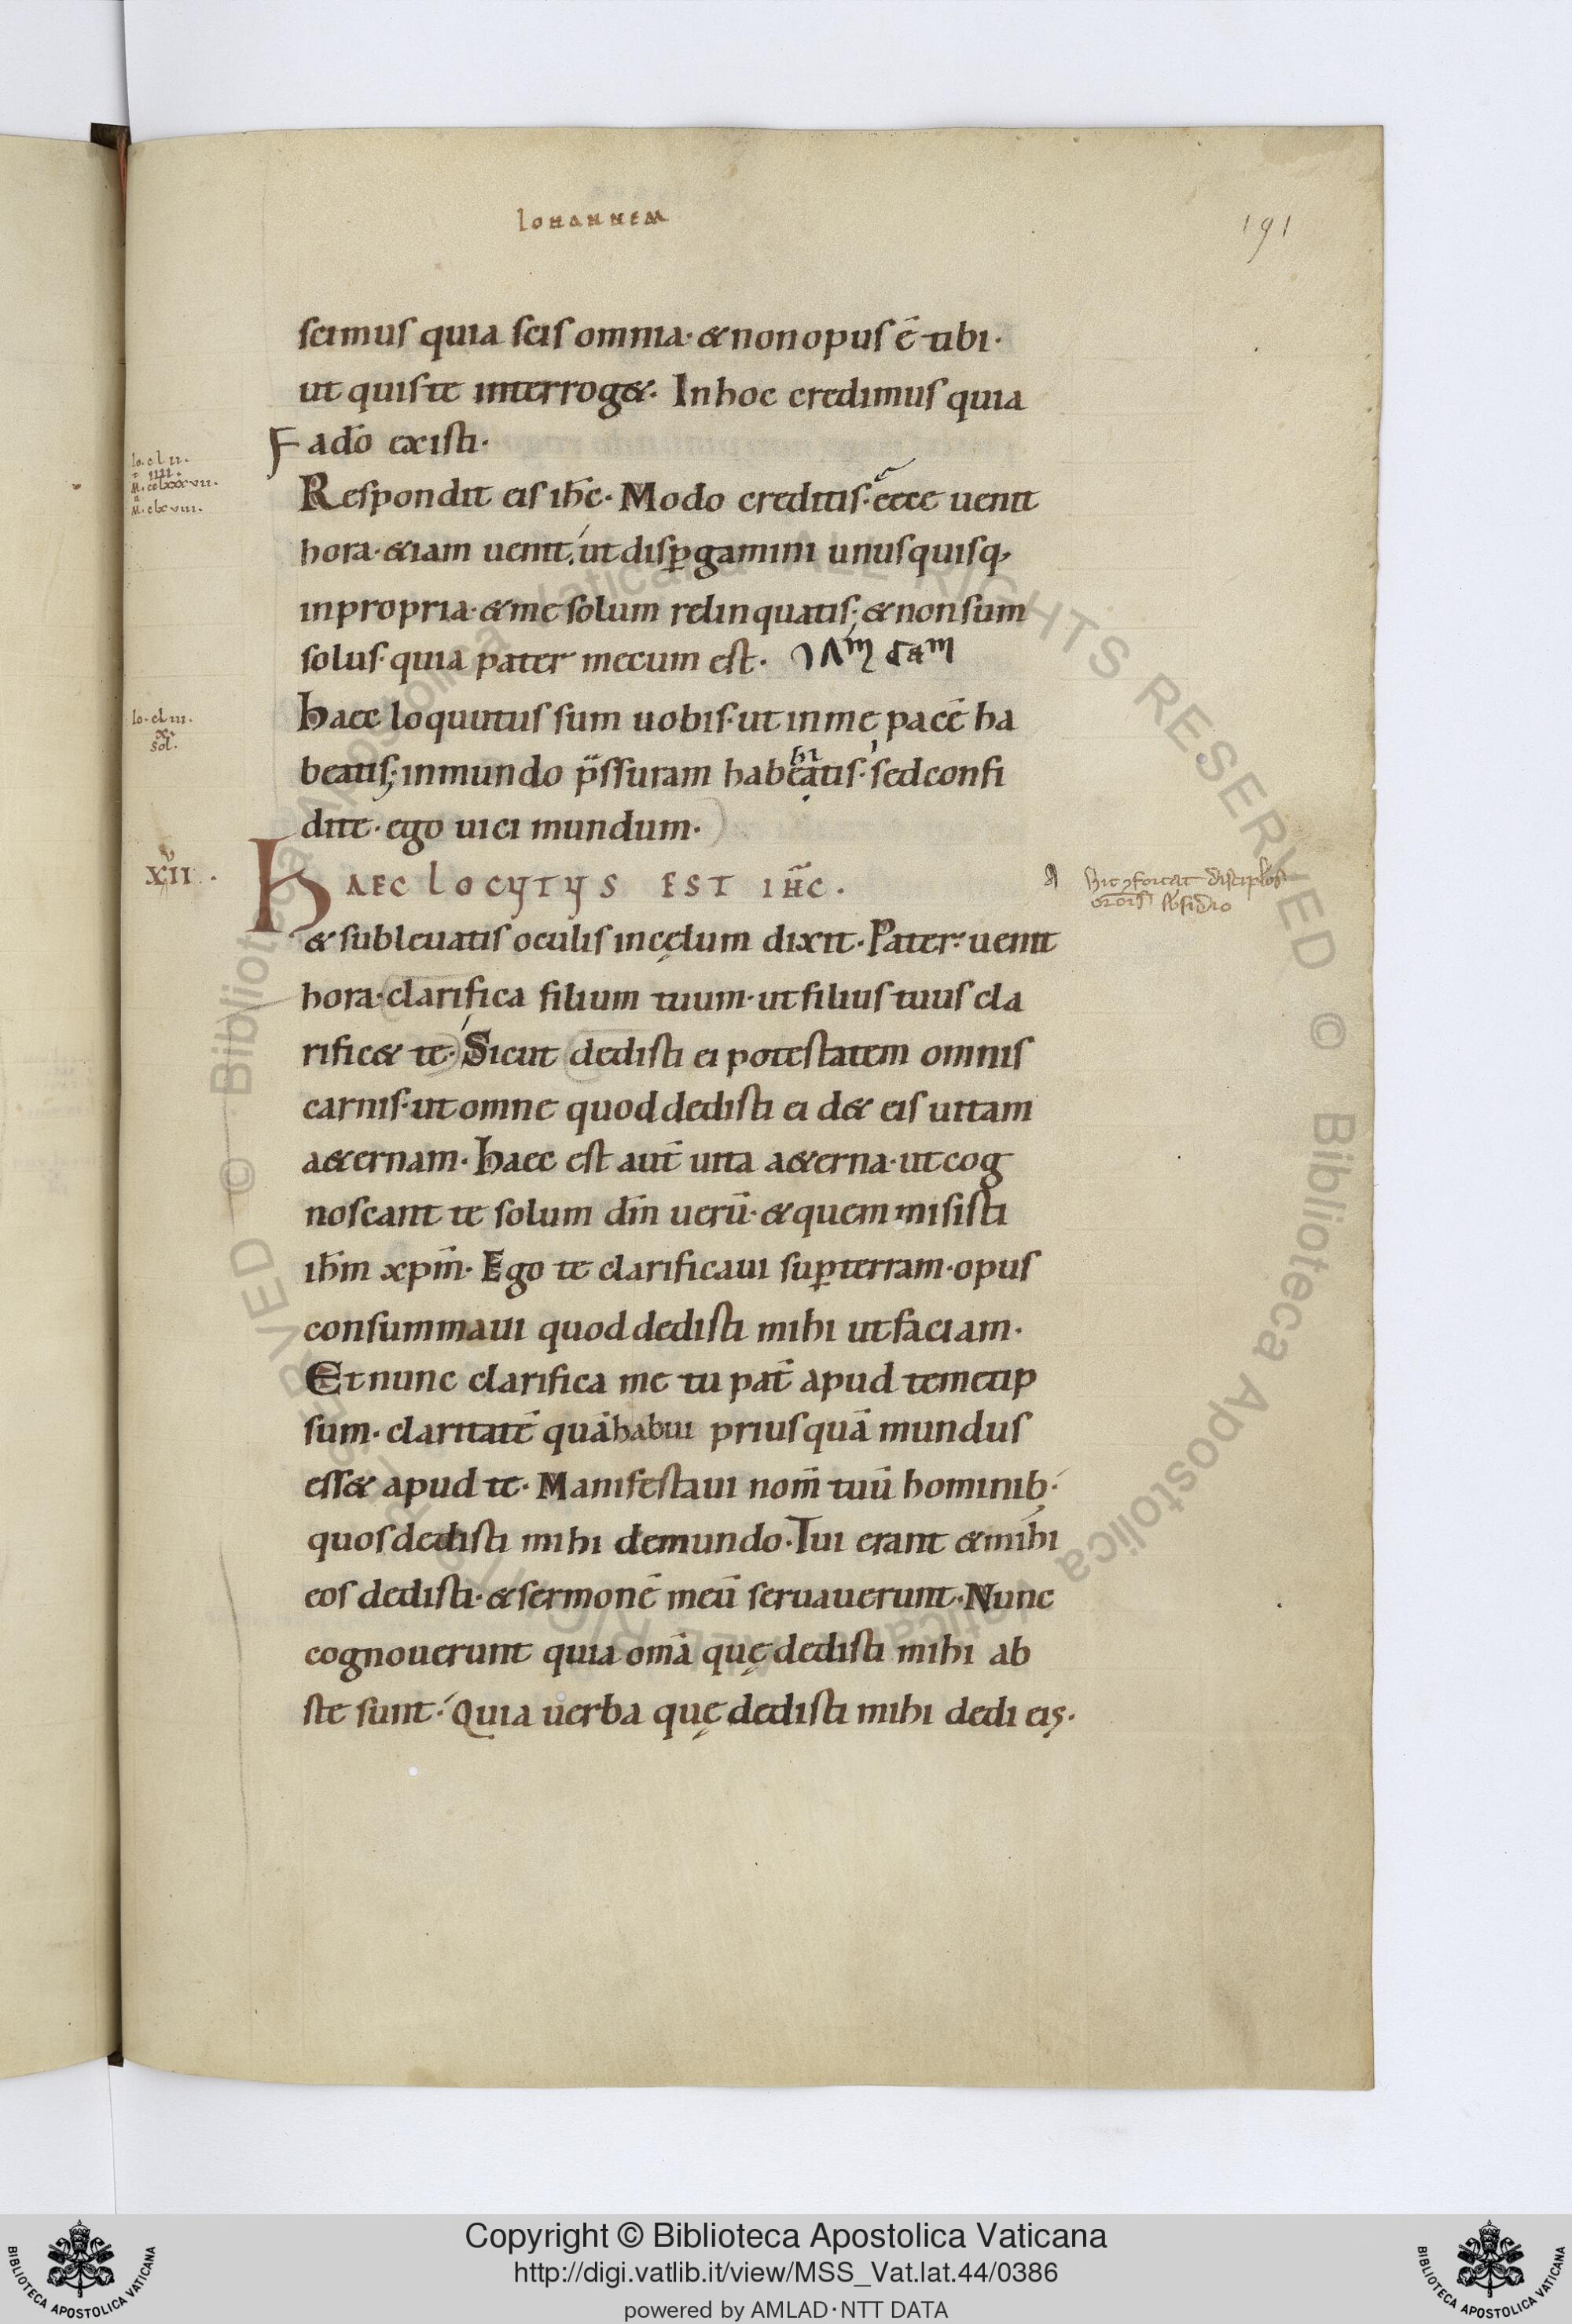 Iohannem
191
scimus quia scis omnia· & non opus ē tibi·
ut quis te interrog&· In hoc credimus quia
a dō existi·
Io·clII·
IIII·
M·cclxxxvII·
M·clxvIII·
Respondit eis ihc̄· Modo creditis· ecce uenit
hora· & iam uenit· ut disꝑgamini unusquisq;
in propria· & me solum relinquatis; & non sum
solus· quia pater mecum est·
Io·clIII·
x·
sol·
Haec loquutus sum uobis· ut in me pacē ha
beatis; in mundo p̄ssuram habeatis· sed confi
dite· ego uici mundum·
XVII·
HAEC LOCUTUS EST IHC̄·
& subleuatis oculis in cęlum dixit· Pater· uenit
hora· clarifica filium tuum· ut filius tuus cla
rific& te· Sicut dedisti ei potestatem omnis
carnis· ut omne quod dedisti ei d& eis uitam
a&ernam· Haec est aut̄ uita a&erna· ut cog
noscant te solum dm̄ uerū· & quem misisti
ihm̄ xpm̄· Ego te clarificaui suꝑ terram· opus
consummaui quod dedisti mihi ut faciam·
Et nunc clarifica me tu pat̄ apud temetip
sum· claritatē quā habui priusquā mundus
ess& apud te· Manifestaui nom̄ tuū hominib;
quos dedisti mihi de mundo· Tui erant & mihi
eos dedisti· & sermonē meū seruauerunt· Nunc
cognouerunt quia om̄a quę dedisti mihi ab
ste sunt· Quia uerba quę dedisti mihi dedi eis·
Copyright © Biblioteca Apostolica Vaticana
http://digi.vatlib.it/view/MSS_Vat.lat.44/0386
powered by AMLAD·NTT DATA
BIBLIOTECA APOSTOLICA VATICANA
BIBLIOTECA APOSTOLICA VATICANA